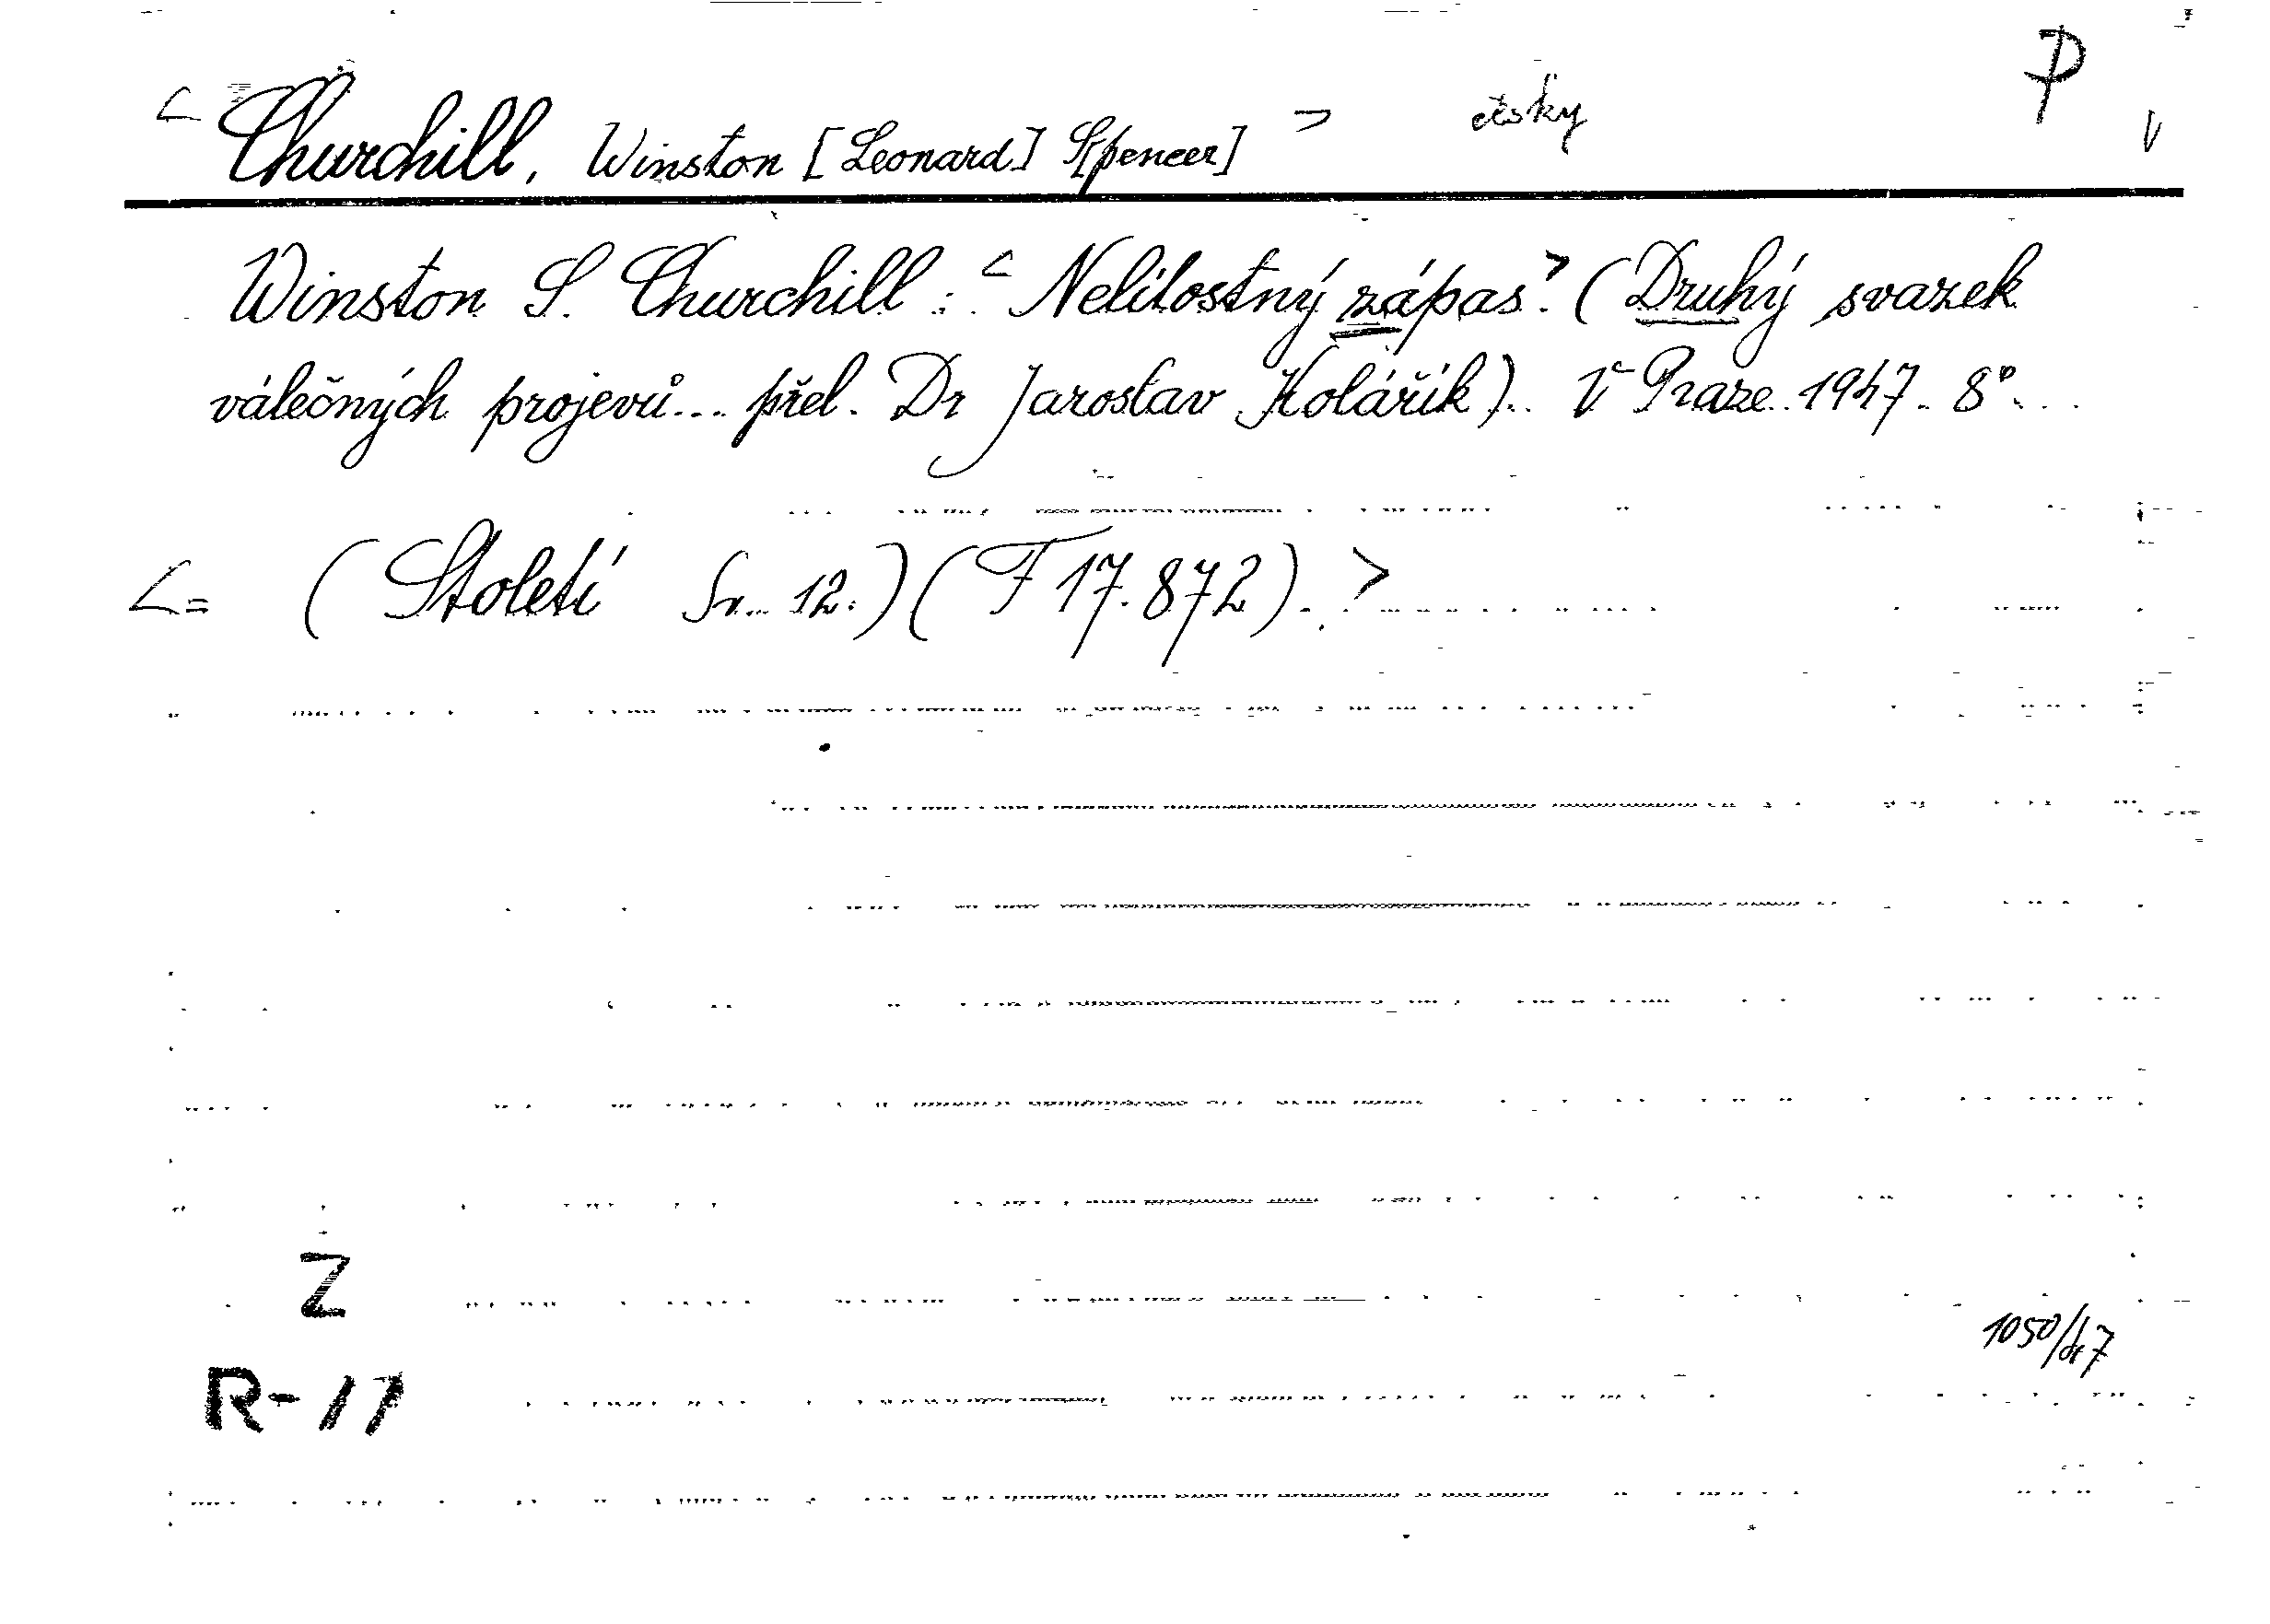 < Churchill, Winston [Leonard] S[pencer] > česky P V
Winston S. Churchill: < Nelítostný zápas >. (Druhý svazek
válečných projevů... přel. Dr Jaroslav Kolářík). V Praze 1947. 8°.
<= (Století Sv. 12.) (F 17.872). >
Z
1050/47
R-17